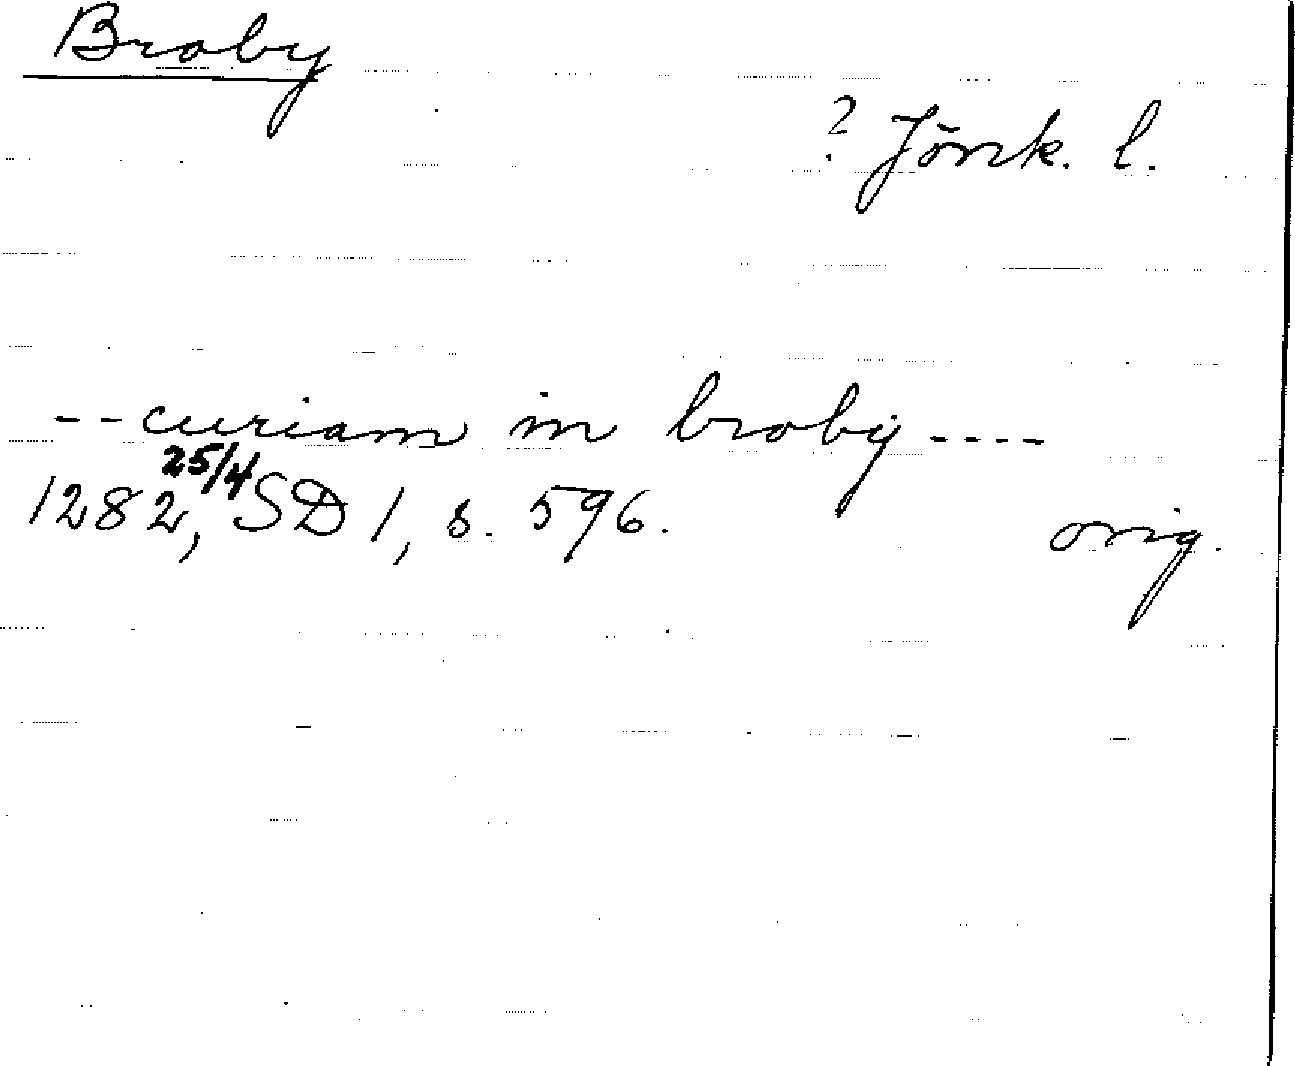 Broby
? Jönk. l.
-- curiam in broby ----
1282, 25/4 SD 1, s. 596.
orig.